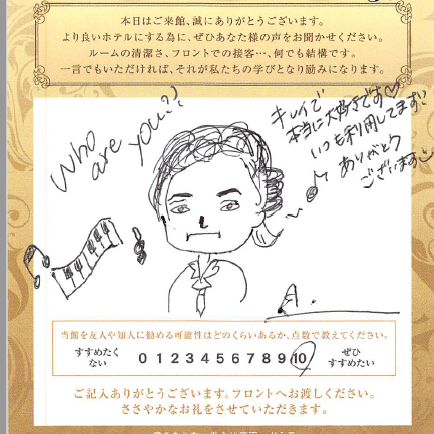 本日はご来館、誠にありがとうございます。
より良いホテルにする為に、ぜひあなた様の声をお聞かせください。
ルームの清潔さ、フロントでの接客…、何でも結構です。
一言でもいただければ、それが私たちの学びとなり励みになります。
Who
are you??
キレイで
本当に大好きです♡
いつも利用してます!
ありがとう
ございます
A.
当館を友人や知人に勧める可能性はどのくらいあるか、点数で教えてください。
すすめたくない 0 1 2 3 4 5 6 7 8 9 10 ぜひすすめたい
ご記入ありがとうございます。フロントへお渡しください。
ささやかなお礼をさせていただきます。